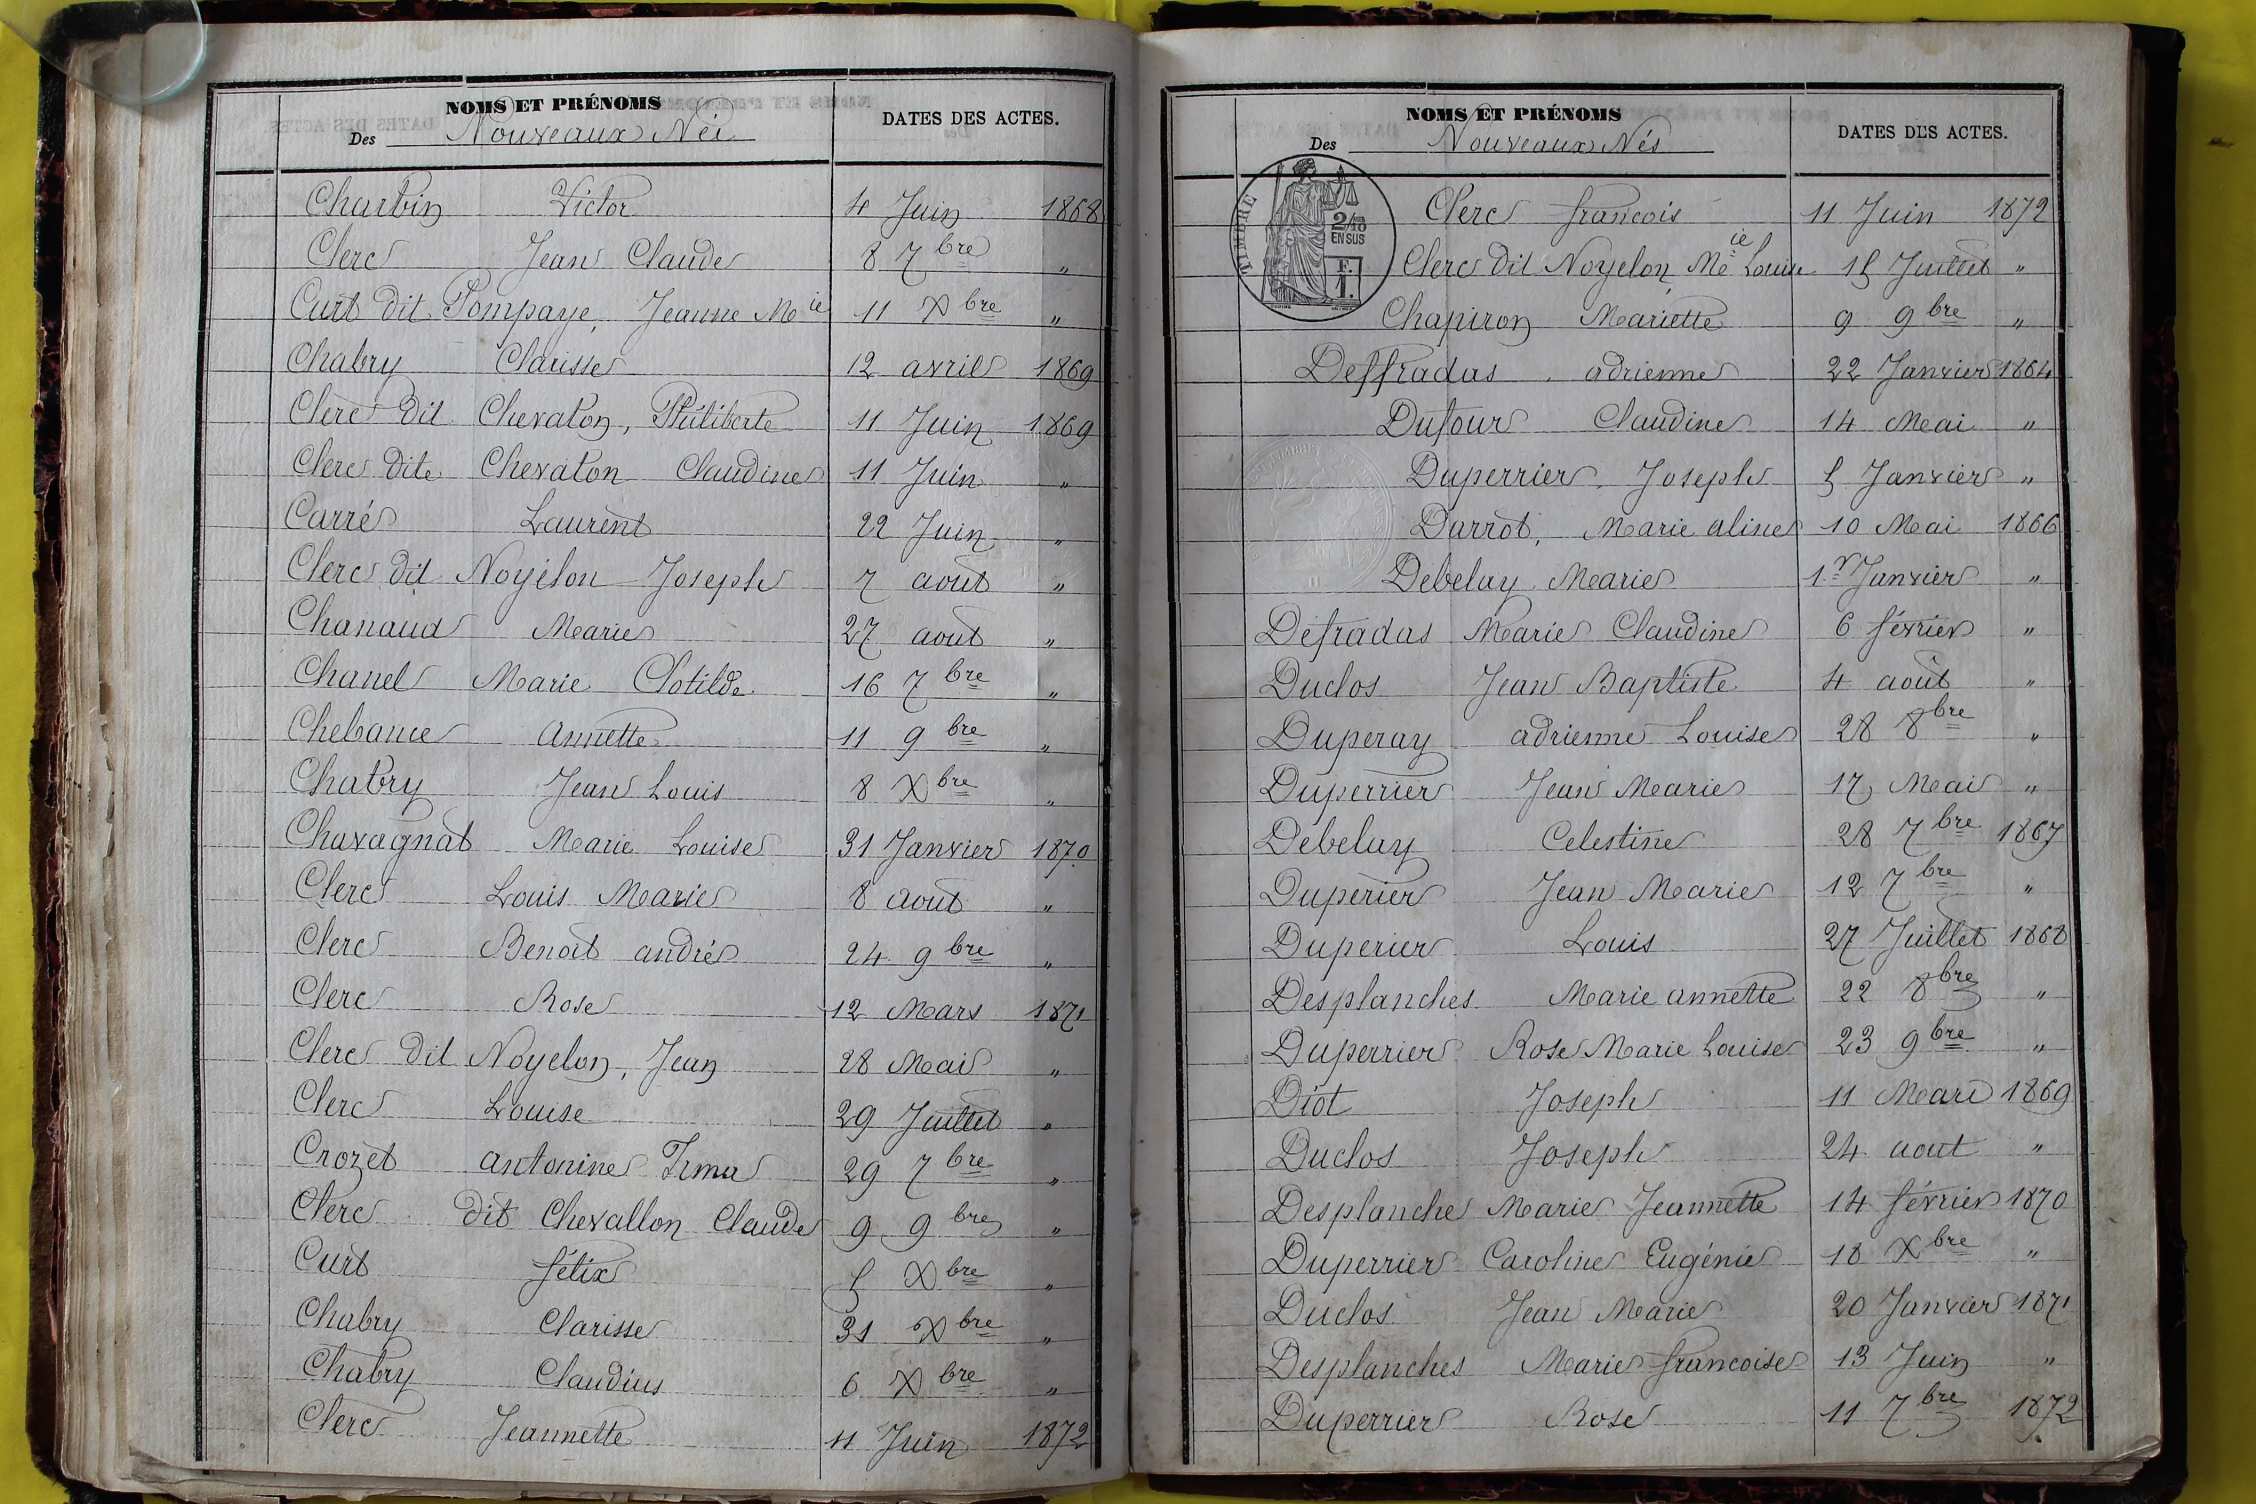 NOMS ET PRÉNOMS
Des Nouveaux Nés
DATES DES ACTES.
Charbin Victor 4 Juin 1868
Clerc Jean Claude 8 7bre "
Curt dit Pompaye, Jeanne Mie 11 Xbre "
Chabry Clarisse 12 avril 1869
Clerc dit Chevalon, Philiberte 11 Juin 1869
Clerc dite Chevalon Claudine 11 Juin "
Carré Laurent 22 Juin "
Clerc dit Noyélon Joseph 7 août "
Chanaud Marie 27 aout "
Chanel Marie Clotilde 16 7bre "
Chebance annette 11 9bre "
Chabry Jean Louis 8 Xbre "
Chavagnat Marie Louise 31 Janvier 1870
Clerc Louis Marie 8 aout "
Clerc Benoit andré 24 9bre "
Clerc Rose 12 Mars 1871
Clerc dit Noyelon, Jean 28 Mai "
Clerc Louise 29 Juillet "
Crozet antonine Irma 29 7bre "
Clerc dit Chevallon Claude 9 9bre "
Curt félix 5 Xbre "
Chabry Clarisse 31 Xbre "
Chabry Claudius 6 Xbre "
Clerc Jeannette 11 Juin 1872
NOMS ET PRÉNOMS
Des Nouveaux Nés
DATES DES ACTES.
TIMBRE
2/10
EN SUS
F.
1.
Clerc francois 11 Juin 1872
Clerc dit Noyelon Meie Louise 15 Juillet "
Chapiron Mariette 9 9bre "
Deffradas adrienne 22 Janvier 1864
Dufour Claudine 14 Mai "
Duperrier Joseph 5 Janvier "
Darrot, Marie aline 10 Mai 1866
Debelay Marie 1r Janvier "
Défradas Marie Claudine 6 février "
Duclos Jean Baptiste 4 août "
Duperay adrienne Louise 28 8bre "
Duperrier Jean Marie 17 Mai "
Debelay Celestine 28 7bre 1867
Duperier Jean Marie 12 7bre "
Duperier Louis 27 Juillet 1868
Desplanches Marie annette 22 8bre "
Duperrier Rose Marie Louise 23 9bre "
Diot Joseph 11 Mars 1869
Duclos Joseph 24 aout "
Desplanche Marie Jeannette 14 février 1870
Duperrier Caroline Eugénie 18 Xbre "
Duclos Jean Marie 20 Janvier 1871
Desplanches Marie francoise 13 Juin "
Duperrier Rose 11 7bre 1872